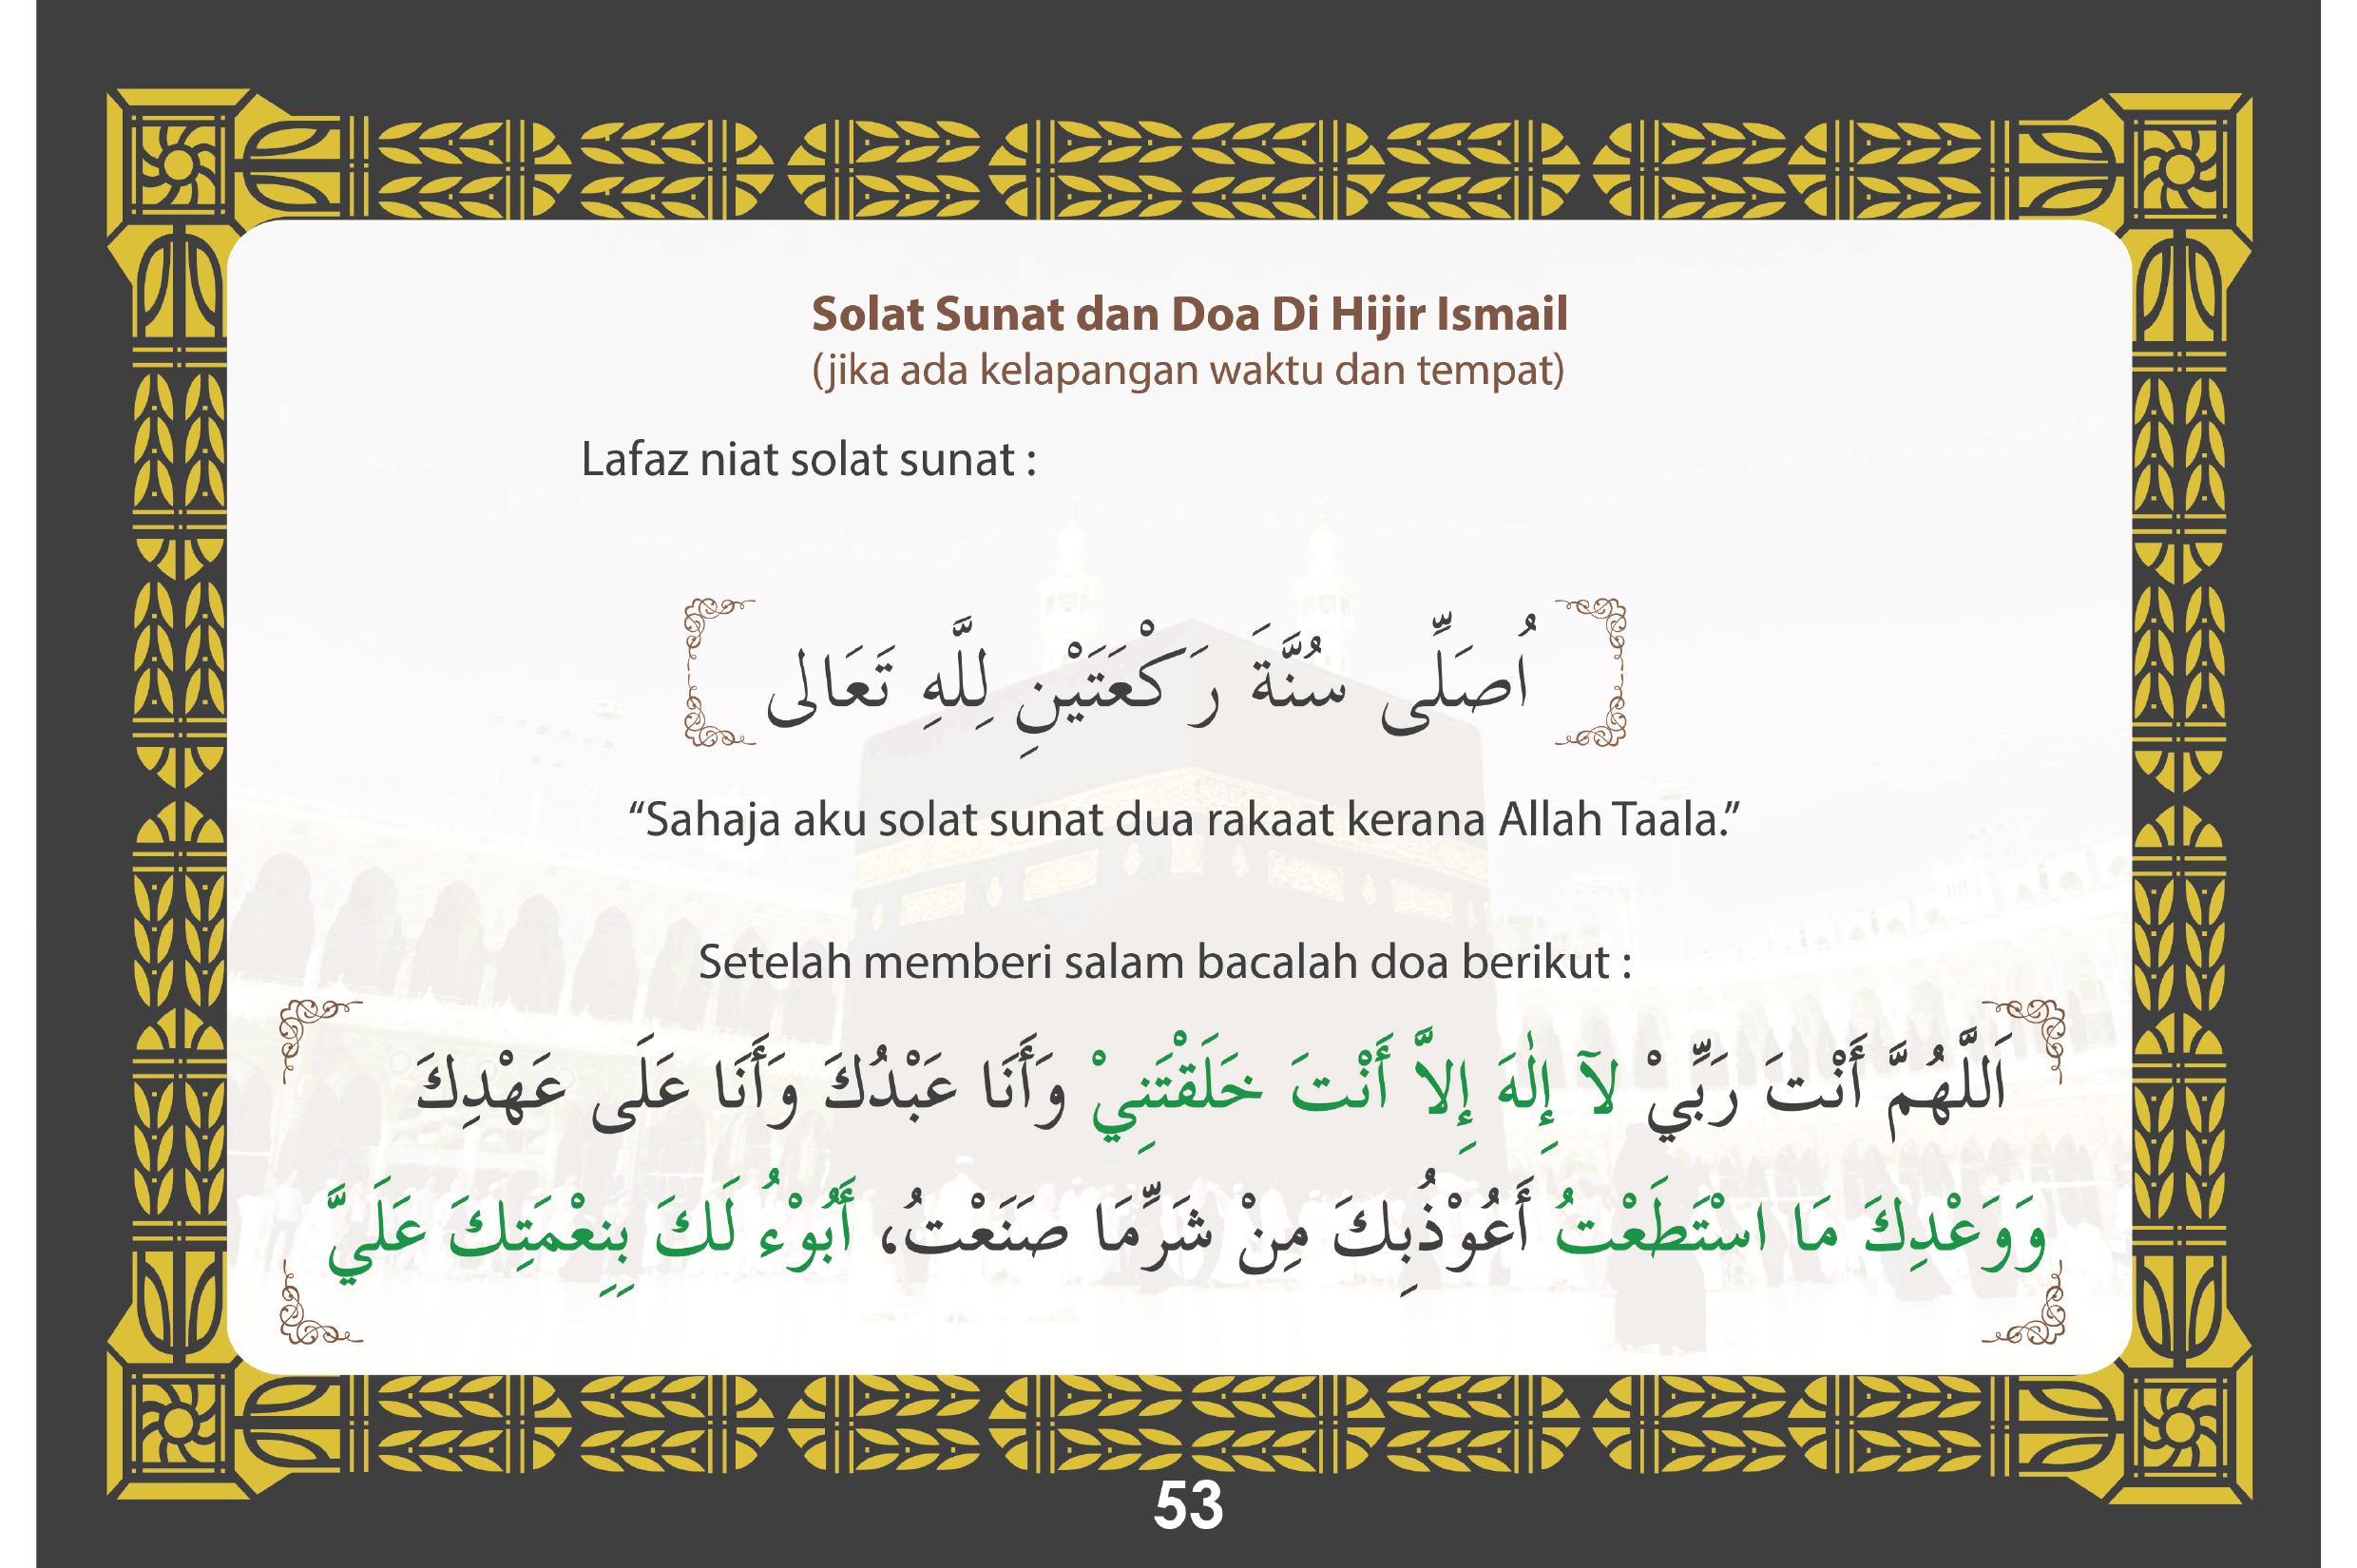 Solat Sunat dan Doa Di Hijir Ismail
(jika ada kelapangan waktu dan tempat)
Lafaz niat solat sunat :
اُصَلِّى سُنَّةَ رَكْعَتَيْنِ لِلَّهِ تَعَالى
“Sahaja aku solat sunat dua rakaat kerana Allah Taala.”
Setelah memberi salam bacalah doa berikut :
اَللَّهُمَّ أَنْتَ رَبِّيْ لآ إِلٰهَ إِلاَّ أَنْتَ خَلَقْتَنِيْ وَأَنَا عَبْدُكَ وَأَنَا عَلَى عَهْدِكَ
وَوَعْدِكَ مَا اسْتَطَعْتُ أَعُوْذُبِكَ مِنْ شَرِّمَا صَنَعْتُ، أَبُوْءُ لَكَ بِنِعْمَتِكَ عَلَيَّ
53